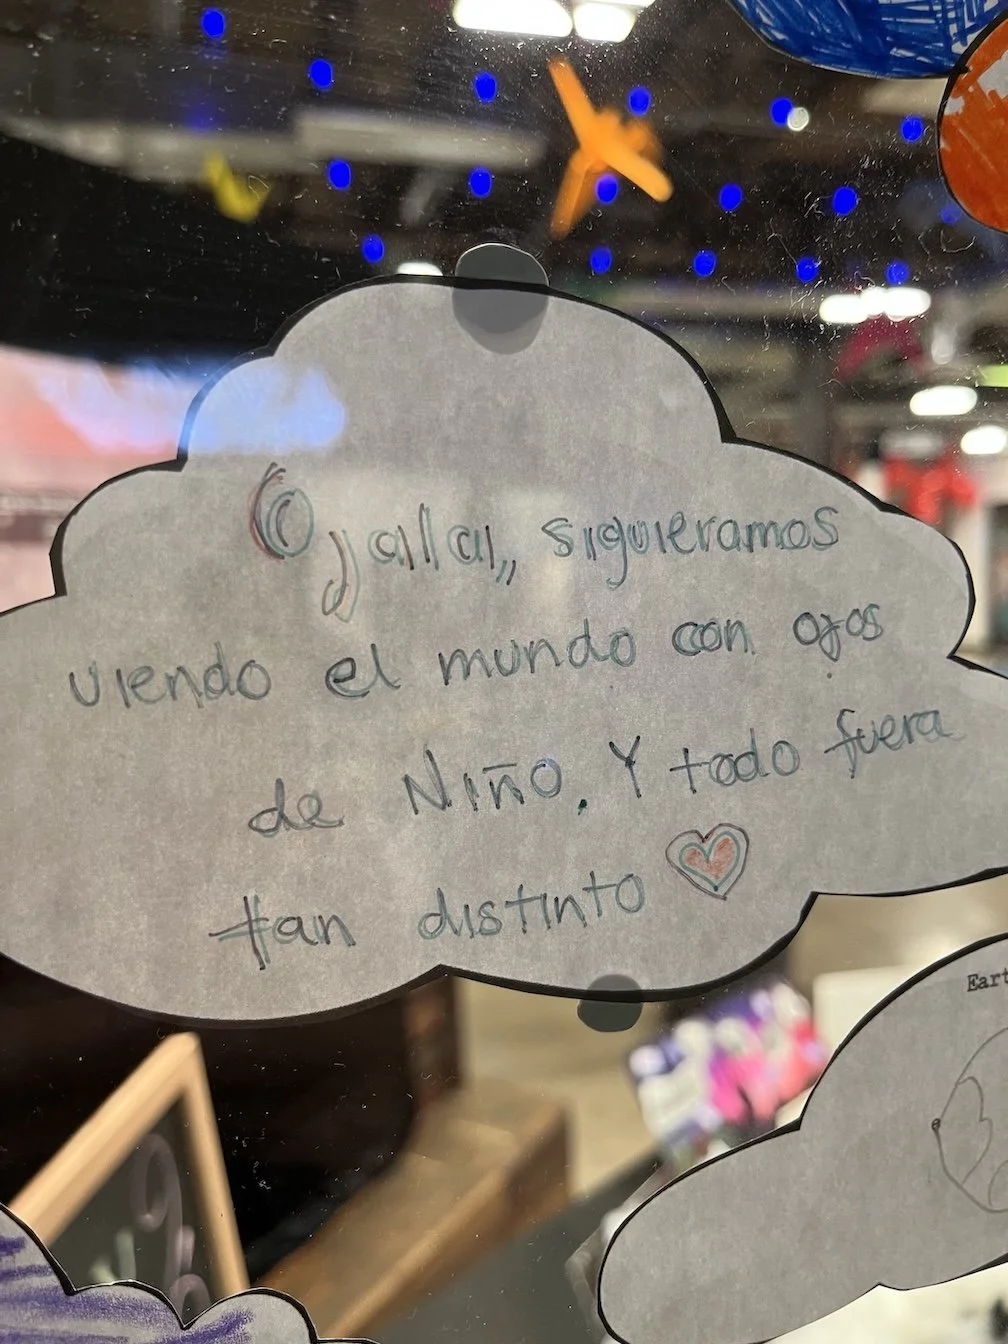 Ojalai,, siguieramos
viendo el mundo con ojos
de Niño. Y todo fuera
tan distinto
Eart